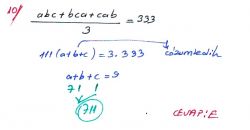 10) abc+bca+cab / 3 = 333
111(a+b+c) = 3.333 çözümledik
a+b+c = 9
7 1 1
711
CEVAP: E